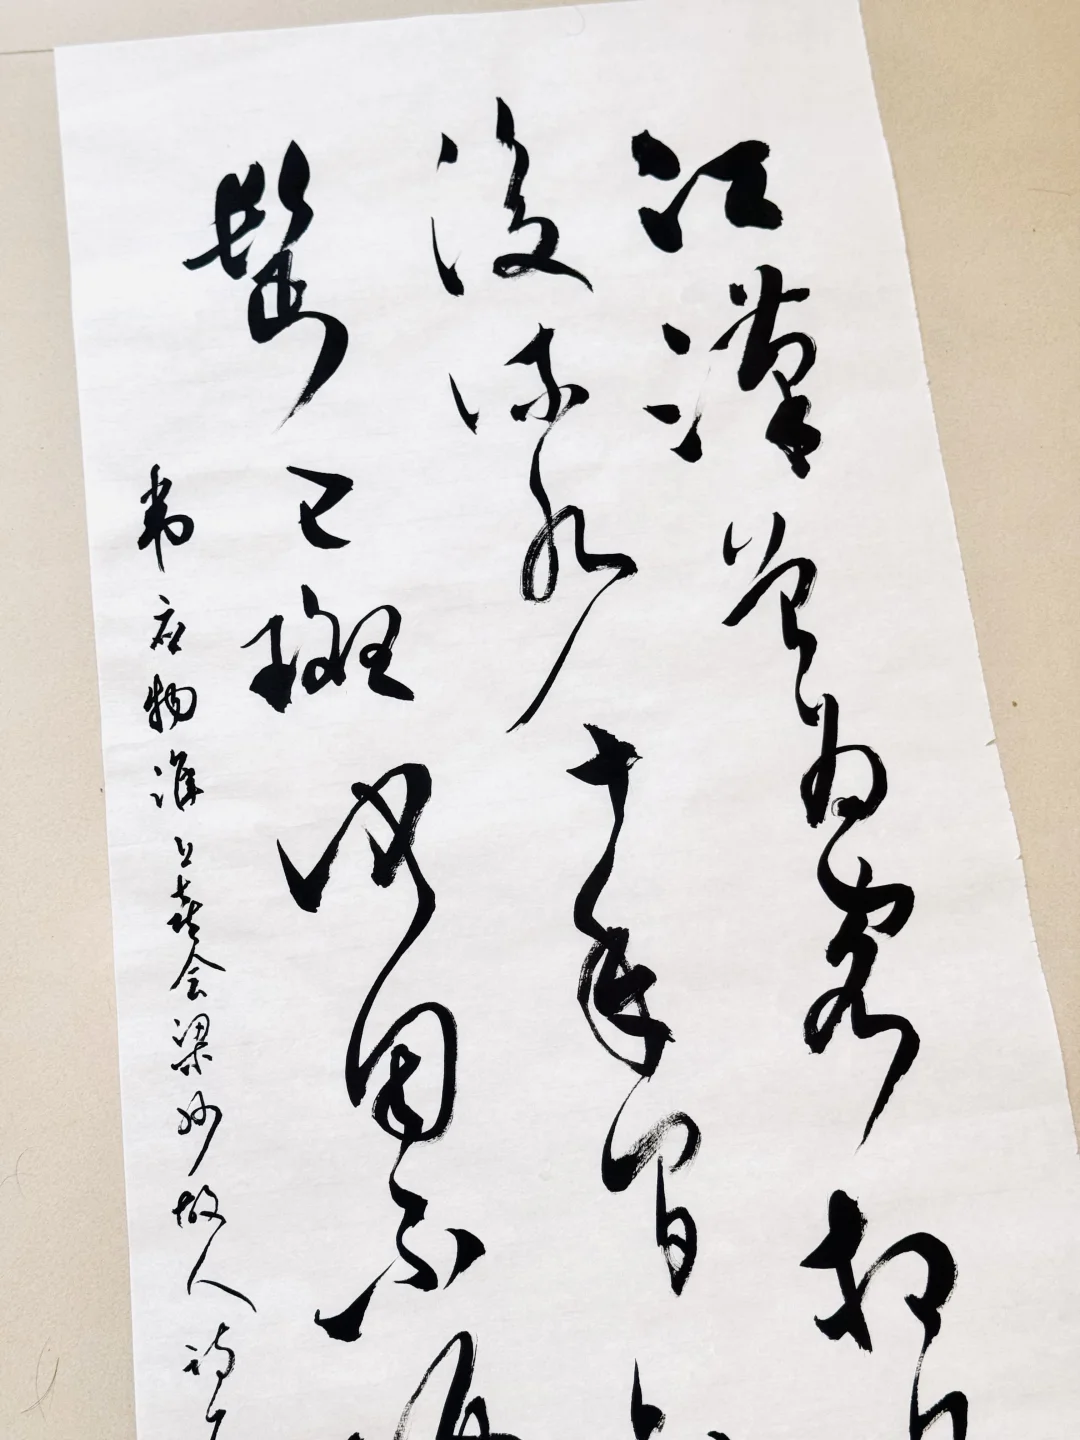 江漢曾为客相
後流水十年间
鬢已斑何因不
韦应物淮上喜会梁州故人诗